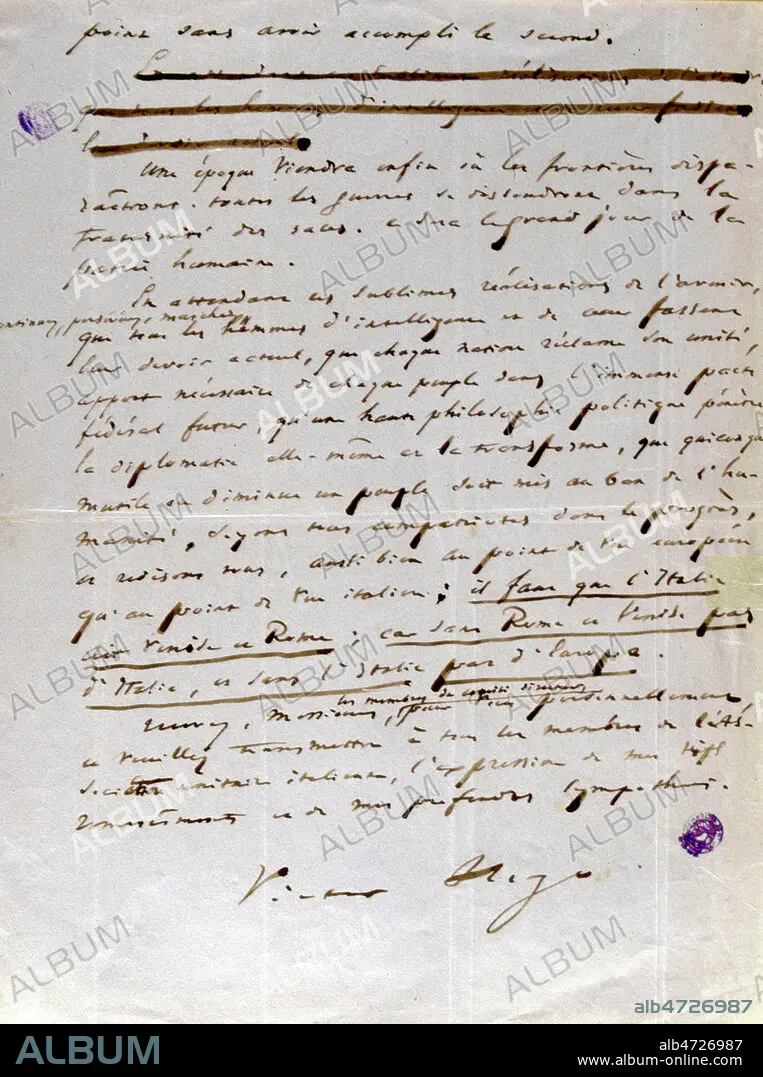 point sans avoir accompli le second.
En attendant
que tous les hommes d'intelligence
Une époque viendra enfin où les frontières dispa-
raîtront. toutes les guerres se dissoudront dans la
fraternité des races. ce sera le grand jour de la
patrie humaine.
En attendant ces sublimes réalisations de l'avenir,
continuez, persistez, marchez
que tous les hommes d'intelligence et de cœur fassent
leur devoir actuel, que chaque nation réclame son unité,
apport nécessaire de chaque peuple dans l'immense pacte
fédéral futur, qu'une haute philosophie politique pénètre
la diplomatie elle-même et la transforme, que quiconque
mutile ou diminue un peuple soit mis au ban de l'hu-
manité, soyons tous compatriotes dans le progrès,
et redisons tous, aussi bien au point de vue européen
qu'au point de vue italien; il faut que l'Italie
ait Venise et Rome; car sans Rome et Venise pas
d'Italie, et sans l'Italie pas d'Europe.
les membres du comité
Recevez, Messieurs, pour vous personnellement
et veuillez transmettre à tous les membres de l'As-
société unitaire italienne, l'expression de mes
remerciements et de mes profondes sympathies.
Victor Hugo
ALBUM
alb4726987
ALBUM
alb4726987
www.album-online.com